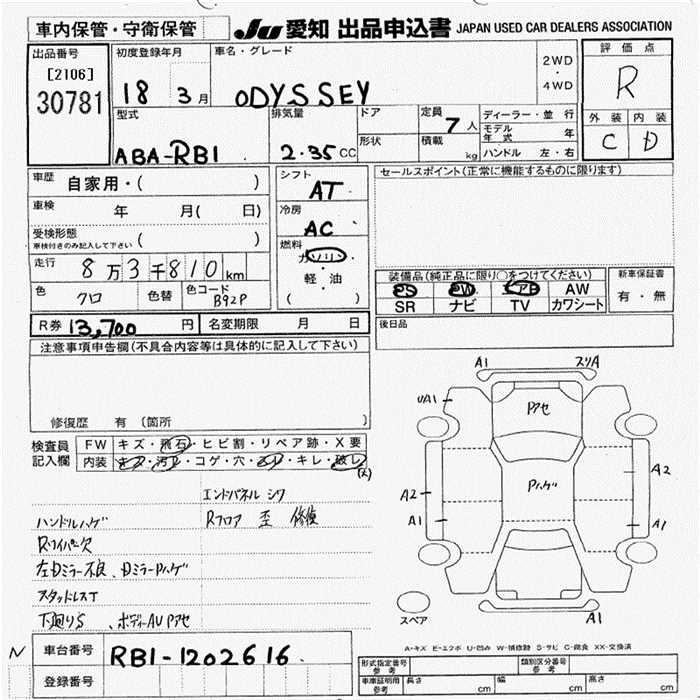 車内保管・守衛保管 JU 愛知 出品申込書 JAPAN USED CAR DEALERS ASSOCIATION
出品番号 [2106] 30781
初度登録年月 18 3月
車名・グレード ODYSSEY
2WD・4WD
評価点 R
外装 C 内装 D
型式 ABA-RB1
排気量 2.35cc
ドア 形状
定員 7人 積載 kg
ディーラー・並行
モデル年式 年
ハンドル 左・右
車歴 自家用・( )
車検 年 月( 日)
受検形態 車検付きのみ記入して下さい ( )
走行 8万3千810km
色 クロ 色替 色コード B92P
シフト AT
冷房 AC
燃料 ガソリン 軽・油 ( )
セールスポイント(正常に機能するものに限ります)
装備品(純正品に限り○をつけてください)
PS PW エアB AW
SR ナビ TV カワシート
新車保証書 有・無
後日品
R券 13,700円 名変期限 月 日
注意事項申告欄(不具合内容等は具体的に記入して下さい)
修復歴 有 (箇所 )
検査員記入欄
FW キズ・飛石・ヒビ割・リペア跡・X要
内装 キズ・汚れ・コゲ・穴・スレ・キレ・破レ(大)
エンドパネル シワ
ハンドルハゲ Rフロア 歪 修復
Rワイパー欠
左Dミラー不良、DミラーPハゲ
スタッドレスT
下廻りS、ボディーAUPアセ
A1 スリA
UA1 Pアセ
Pハゲ
A2 A2
A1 A1
A1
スペア
A-キズ E-エクボ U-凹み W-補修跡 S-サビ C-腐食 XX-交換済
N 車台番号 RB1-1202616
登録番号
形式指定番号 参考 類別区分番号 参考
車庫証明用 参考 長さ cm 幅 cm 高さ cm